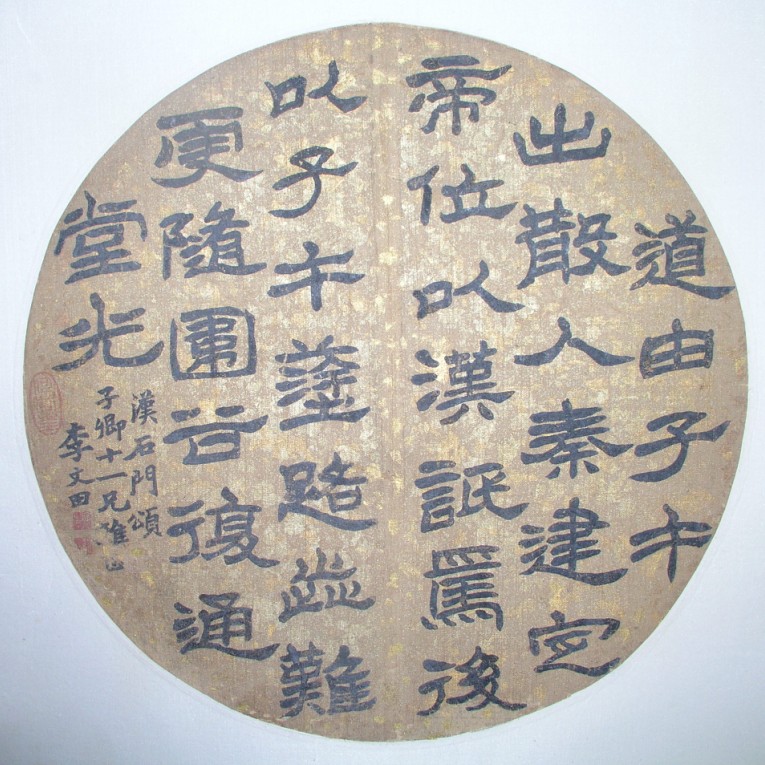 道由子午
出散入秦建定
帝位以漢詆焉後
以子午塗路歰難
更隨圍谷復通
堂光
漢石門頌
子卿十一兄雅
李文田